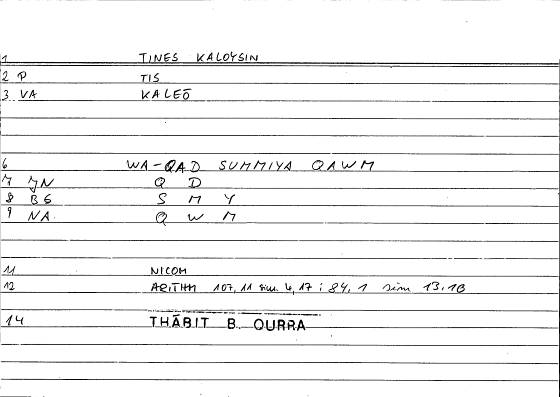 1 TINES KALOYSIN
2 P TIS
3 VA KALEŌ
6 WA-QAD SUMMIYA QAWM
7 JN Q D
8 BG S M Y
9 NA Q W M
11 NICOM
12 ARITHM 107, 11 sim. 4, 17 ; 84, 1 sim 13.18
14 THĀBIT B. QURRA